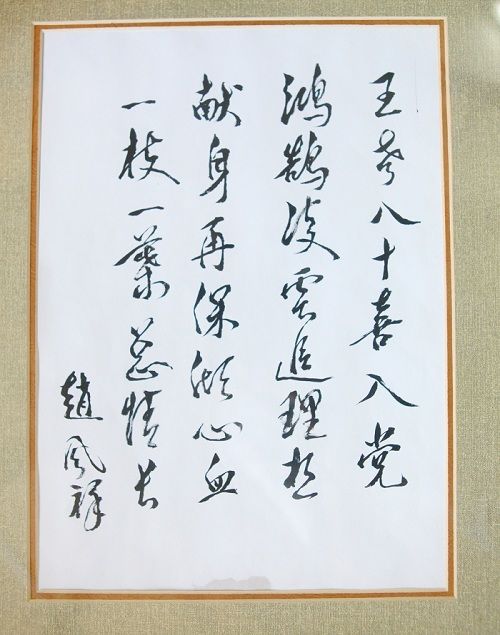 王老八十喜入党
鸿鹄凌雲追理想
献身再保倾心血
一枝一葉总情长
趙风祥